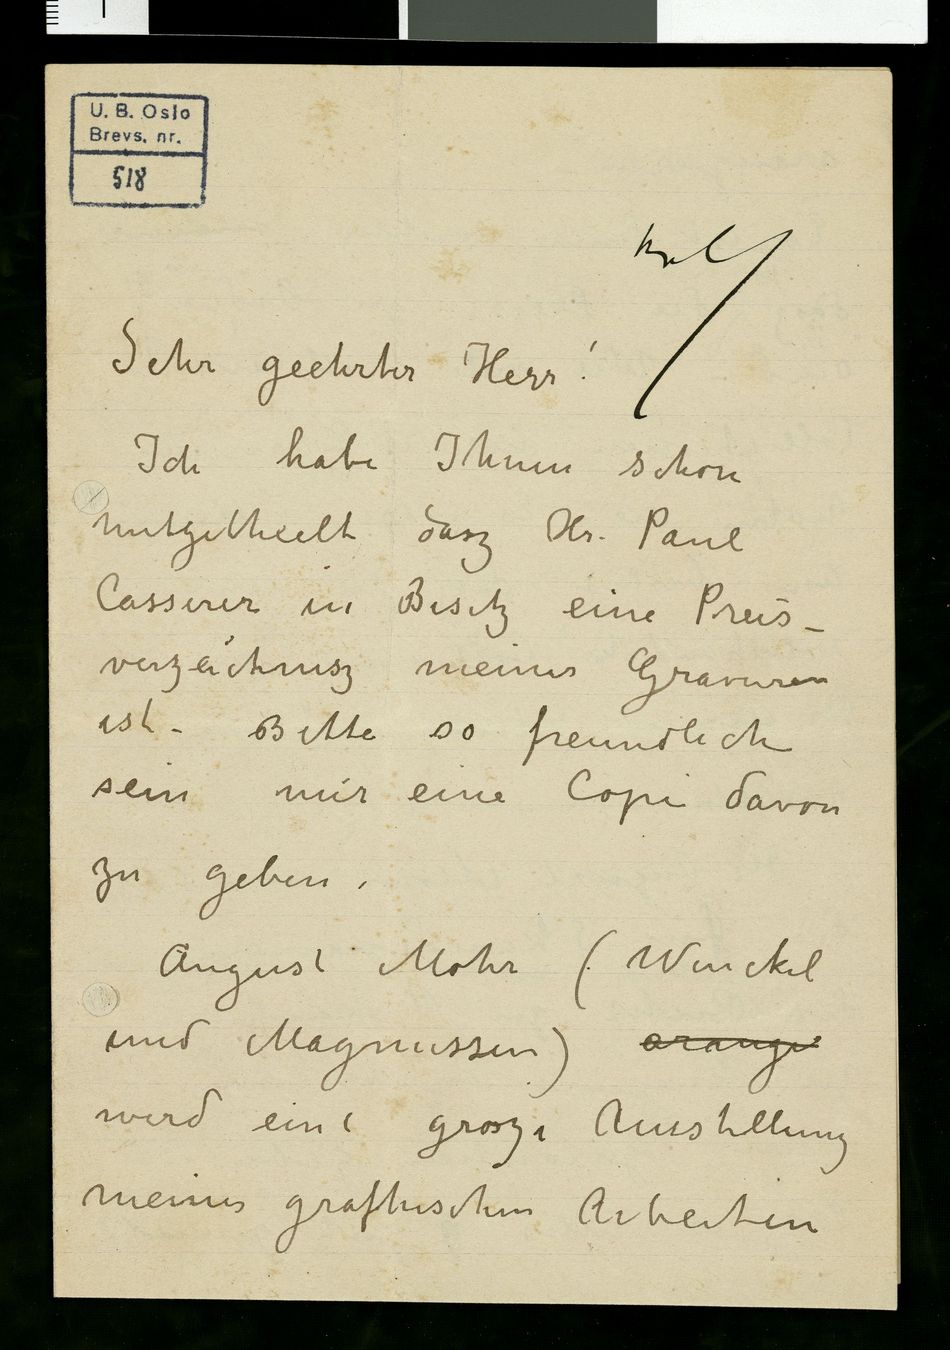 U. B. Oslo
Brevs. nr.
518
Sehr geehrter Herr!
Ich habe Ihnen schon
mitgetheilt dasz Hr. Paul
Casserer in Besitz eine Preis-
verzeichnisz meiner Gravuren
ist. Bitte so freundlich
sein mir eine Copi davon
zu geben.
August Mohr (Winckel
und Magnussen) arange
wird eine grosze Austellung
meiner grafhischen Arbeiten